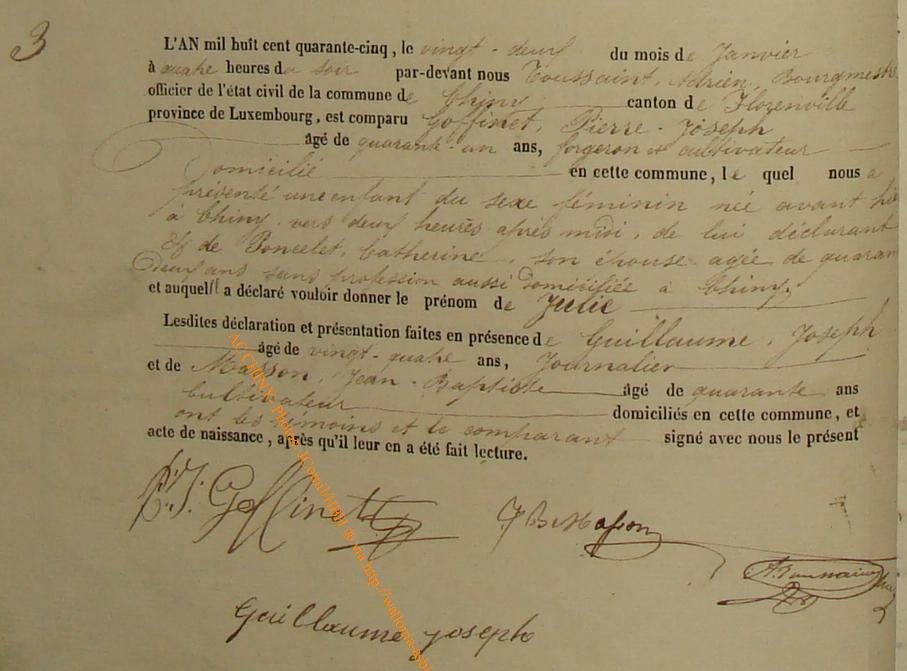 3
L'AN mil huit cent quarante-cinq, le vingt-deux du mois de Janvier
à quatre heures du soir par-devant nous Toussaint, Adrien, Bourgmestre
officier de l'état civil de la commune de Chiny canton de Florenville
province de Luxembourg, est comparu Goffinet, Pierre-Joseph
âgé de quarante-un ans, forgeron et cultivateur
Domicilié en cette commune, le quel nous a
présenté une enfant du sexe féminin née avant hier
à Chiny vers deux heures après midi, de lui déclarant
et de Poncelet, Catherine, son épouse agée de quarante
deux ans sans profession aussi Domiciliée à Chiny,
et auquel il a déclaré vouloir donner le prénom de Julie
Lesdites déclaration et présentation faites en présence de Guillaume, Joseph
âgé de vingt-quatre ans, Journalier
et de Masson, Jean-Baptiste âgé de quarante ans
Cultivateur domiciliés en cette commune, et
ont les témoins et le comparant signé avec nous le présent
acte de naissance, après qu'il leur en a été fait lecture.
P. J. Goffinet
J B Masson
A. Toussaint
Guillaume Joseph